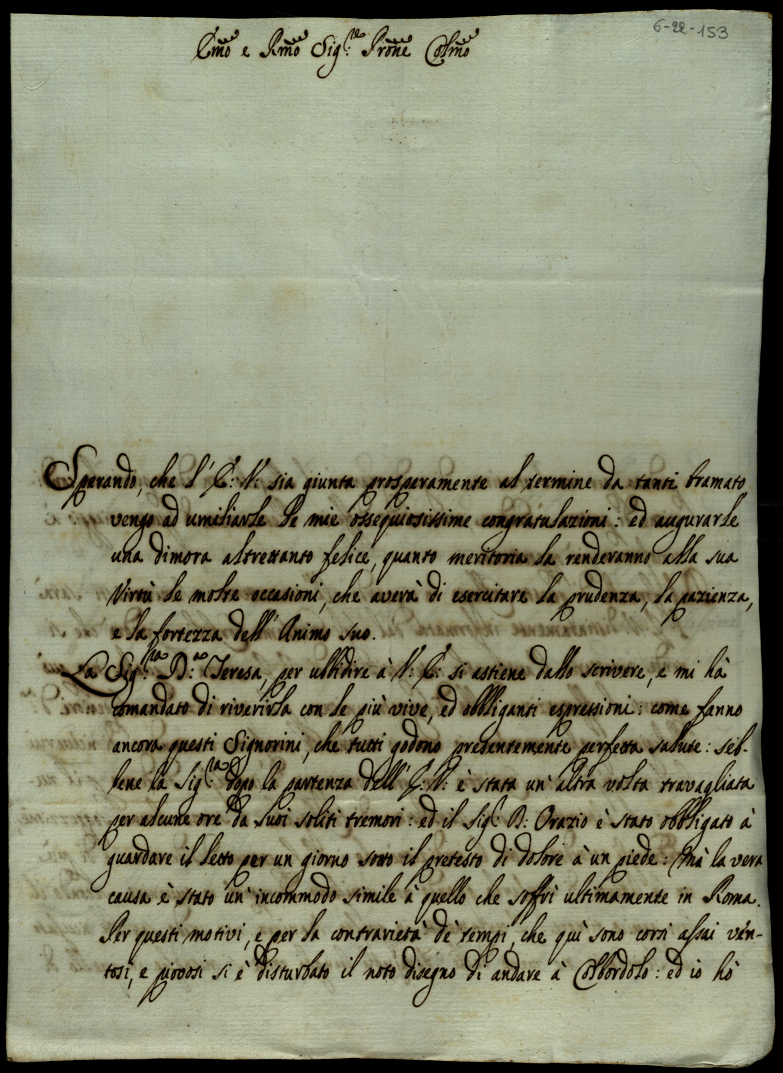 6-22-153
Em̃o e Rm̃o Sig.re Prõne Colm̃o
Sperando, che l'E: V: sia giunta prosperamente al termine da tanti bramato
vengo ad umiliarle le mie ossequiosissime congratulazioni: ed augurarle
una dimora altrettanto felice, quanto meritoria la renderanno alla sua
Virtù le molte occasioni, che averà di esercitare la prudenza, la pazienza,
e la fortezza dell'Animo suo.
La Sig.ra D.na Teresa, per ubbidire à V: E: si astiene dallo scrivere, e mi hà
comandato di riverirla con le più vive, ed obbliganti espressioni: come fanno
ancora questi Signorini, che tutti godono presentemente perfetta salute: seb-
bene la Sig.ra dopo la partenza dell'E: V: è stata un'altra volta travagliata
per alcune ore da suoi soliti tremori: ed il Sig.r D: Orazio è stato obbligato à
guardare il letto per un giorno sotto il pretesto di dolore à un piede: Mà la vera
causa è stato un'incommodo simile à quello che soffrì ultimamente in Roma.
Per questi motivi, e per la contrarietà de' tempi, che quì sono corsi assai ven-
tosi, e piovosi si è disturbato il noto disegno di andare à Colbordolo: ed io hò